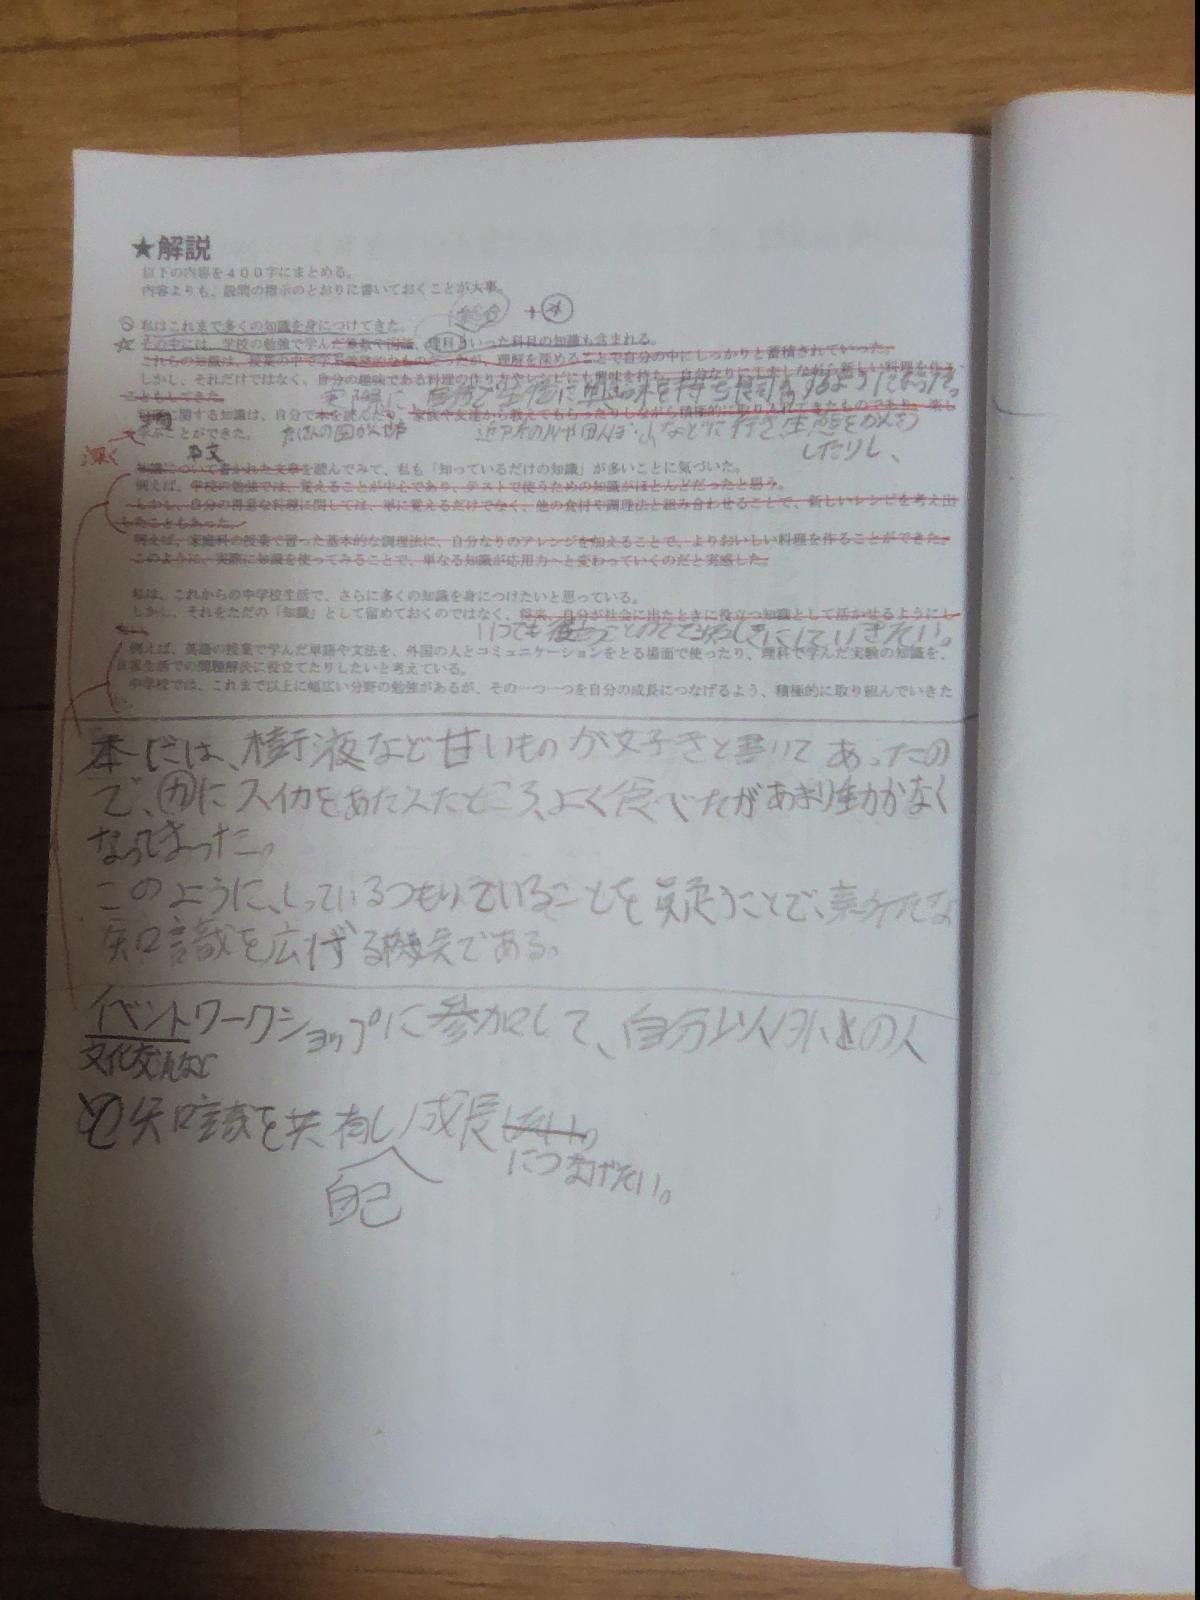 ★解説
以下の内容を400字にまとめる。
内容よりも、設問の指示のとおりに書いておくことが大事。
総合 +
私はこれまで多くの知識を身につけてきた。
その中には、学校の勉強で学んだ算数や国語、理科といった科目の知識も含まれる。
これらの知識は、授業の中で学ぶ基礎的なものだったが、理解を深めることで自分の中にしっかりと蓄積されていった。
しかし、それだけではなく、自分の趣味である料理の作り方やレシピにも興味を持ち、自分なりに工夫しながら新しい料理を作る
こともしてきた。
実際に 自分で生物に興味を持ち飼育するようになった。
に関する知識は、自分で本を読んだり、家族や友達から教えてもらったりしながら積極的に取り入れてきたものであり、楽し
く学ぶことができた。
たくさんの図かんや 近所の川や田んぼ、山などに行き、生態をかんさつ
したりし、
本文
知識について書かれた文章を読んでみて、私も「知っているだけの知識」が多いことに気づいた。
例えば、学校の勉強では、覚えることが中心であり、テストで使うための知識がほとんどだったと思う。
しかし、自分の得意な料理に関しては、単に覚えるだけでなく、他の食材や調理法と組み合わせることで、新しいレシピを考え出
したこともあった。
例えば、家庭科の授業で習った基本的な調理法に、自分なりのアレンジを加えることで、よりおいしい料理を作ることができた。
このように、実際に知識を使ってみることで、単なる知識が応用力へと変わっていくのだと実感した。
私は、これからの中学校生活で、さらに多くの知識を身につけたいと思っている。
しかし、それをただの「知識」として留めておくのではなく、将来、自分が社会に出たときに役立つ知識として活かせるようにし
たい。
いつでも使うことのできる知しきにしていきたい。
例えば、英語の授業で学んだ単語や文法を、外国の人とコミュニケーションをとる場面で使ったり、理科で学んだ実験の知識を、
日常生活での問題解決に役立てたりしたいと考えている。
中学校では、これまで以上に幅広い分野の勉強があるが、その一つ一つを自分の成長につなげるよう、積極的に取り組んでいきた
い。
本には、樹液など甘いものが好きと書いてあったの
で、カにスイカをあたえたところ、よく食べたがあまり動かなく
なってきった。
このように、しっているつもりでいることを疑うことで、新たな
知識を広げる機会である。
イベントワークショップに参加して、自分以外との人
文化交流など
と知識を共有し成長したい。
につなげたい。
自己